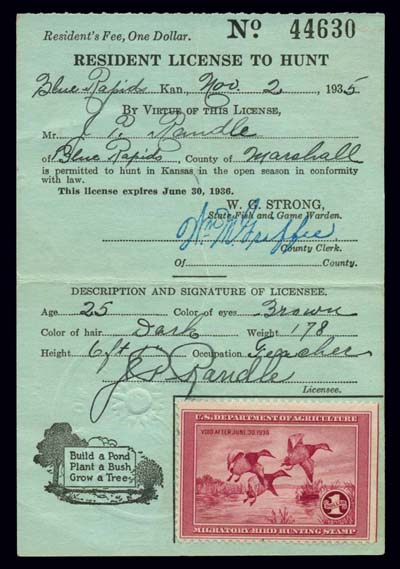 Resident's Fee, One Dollar. No. 44630
RESIDENT LICENSE TO HUNT
Blue Rapids Kan., Nov 2, 1935
BY VIRTUE OF THIS LICENSE,
Mr. J. P. Randle
of Blue Rapids, County of Marshall
is permitted to hunt in Kansas in the open season in conformity
with law.
This license expires June 30, 1936.
W. C. STRONG,
State Fish and Game Warden.
Wm. M. Griffee
County Clerk.
Of County.
DESCRIPTION AND SIGNATURE OF LICENSEE.
Age 25 Color of eyes Brown
Color of hair Dark Weight 178
Height 6 ft Occupation Teacher
J. P. Randle
Licensee.
Build a Pond
Plant a Bush
Grow a Tree
U.S. DEPARTMENT OF AGRICULTURE
VOID AFTER JUNE 30, 1936
$1
MIGRATORY BIRD HUNTING STAMP